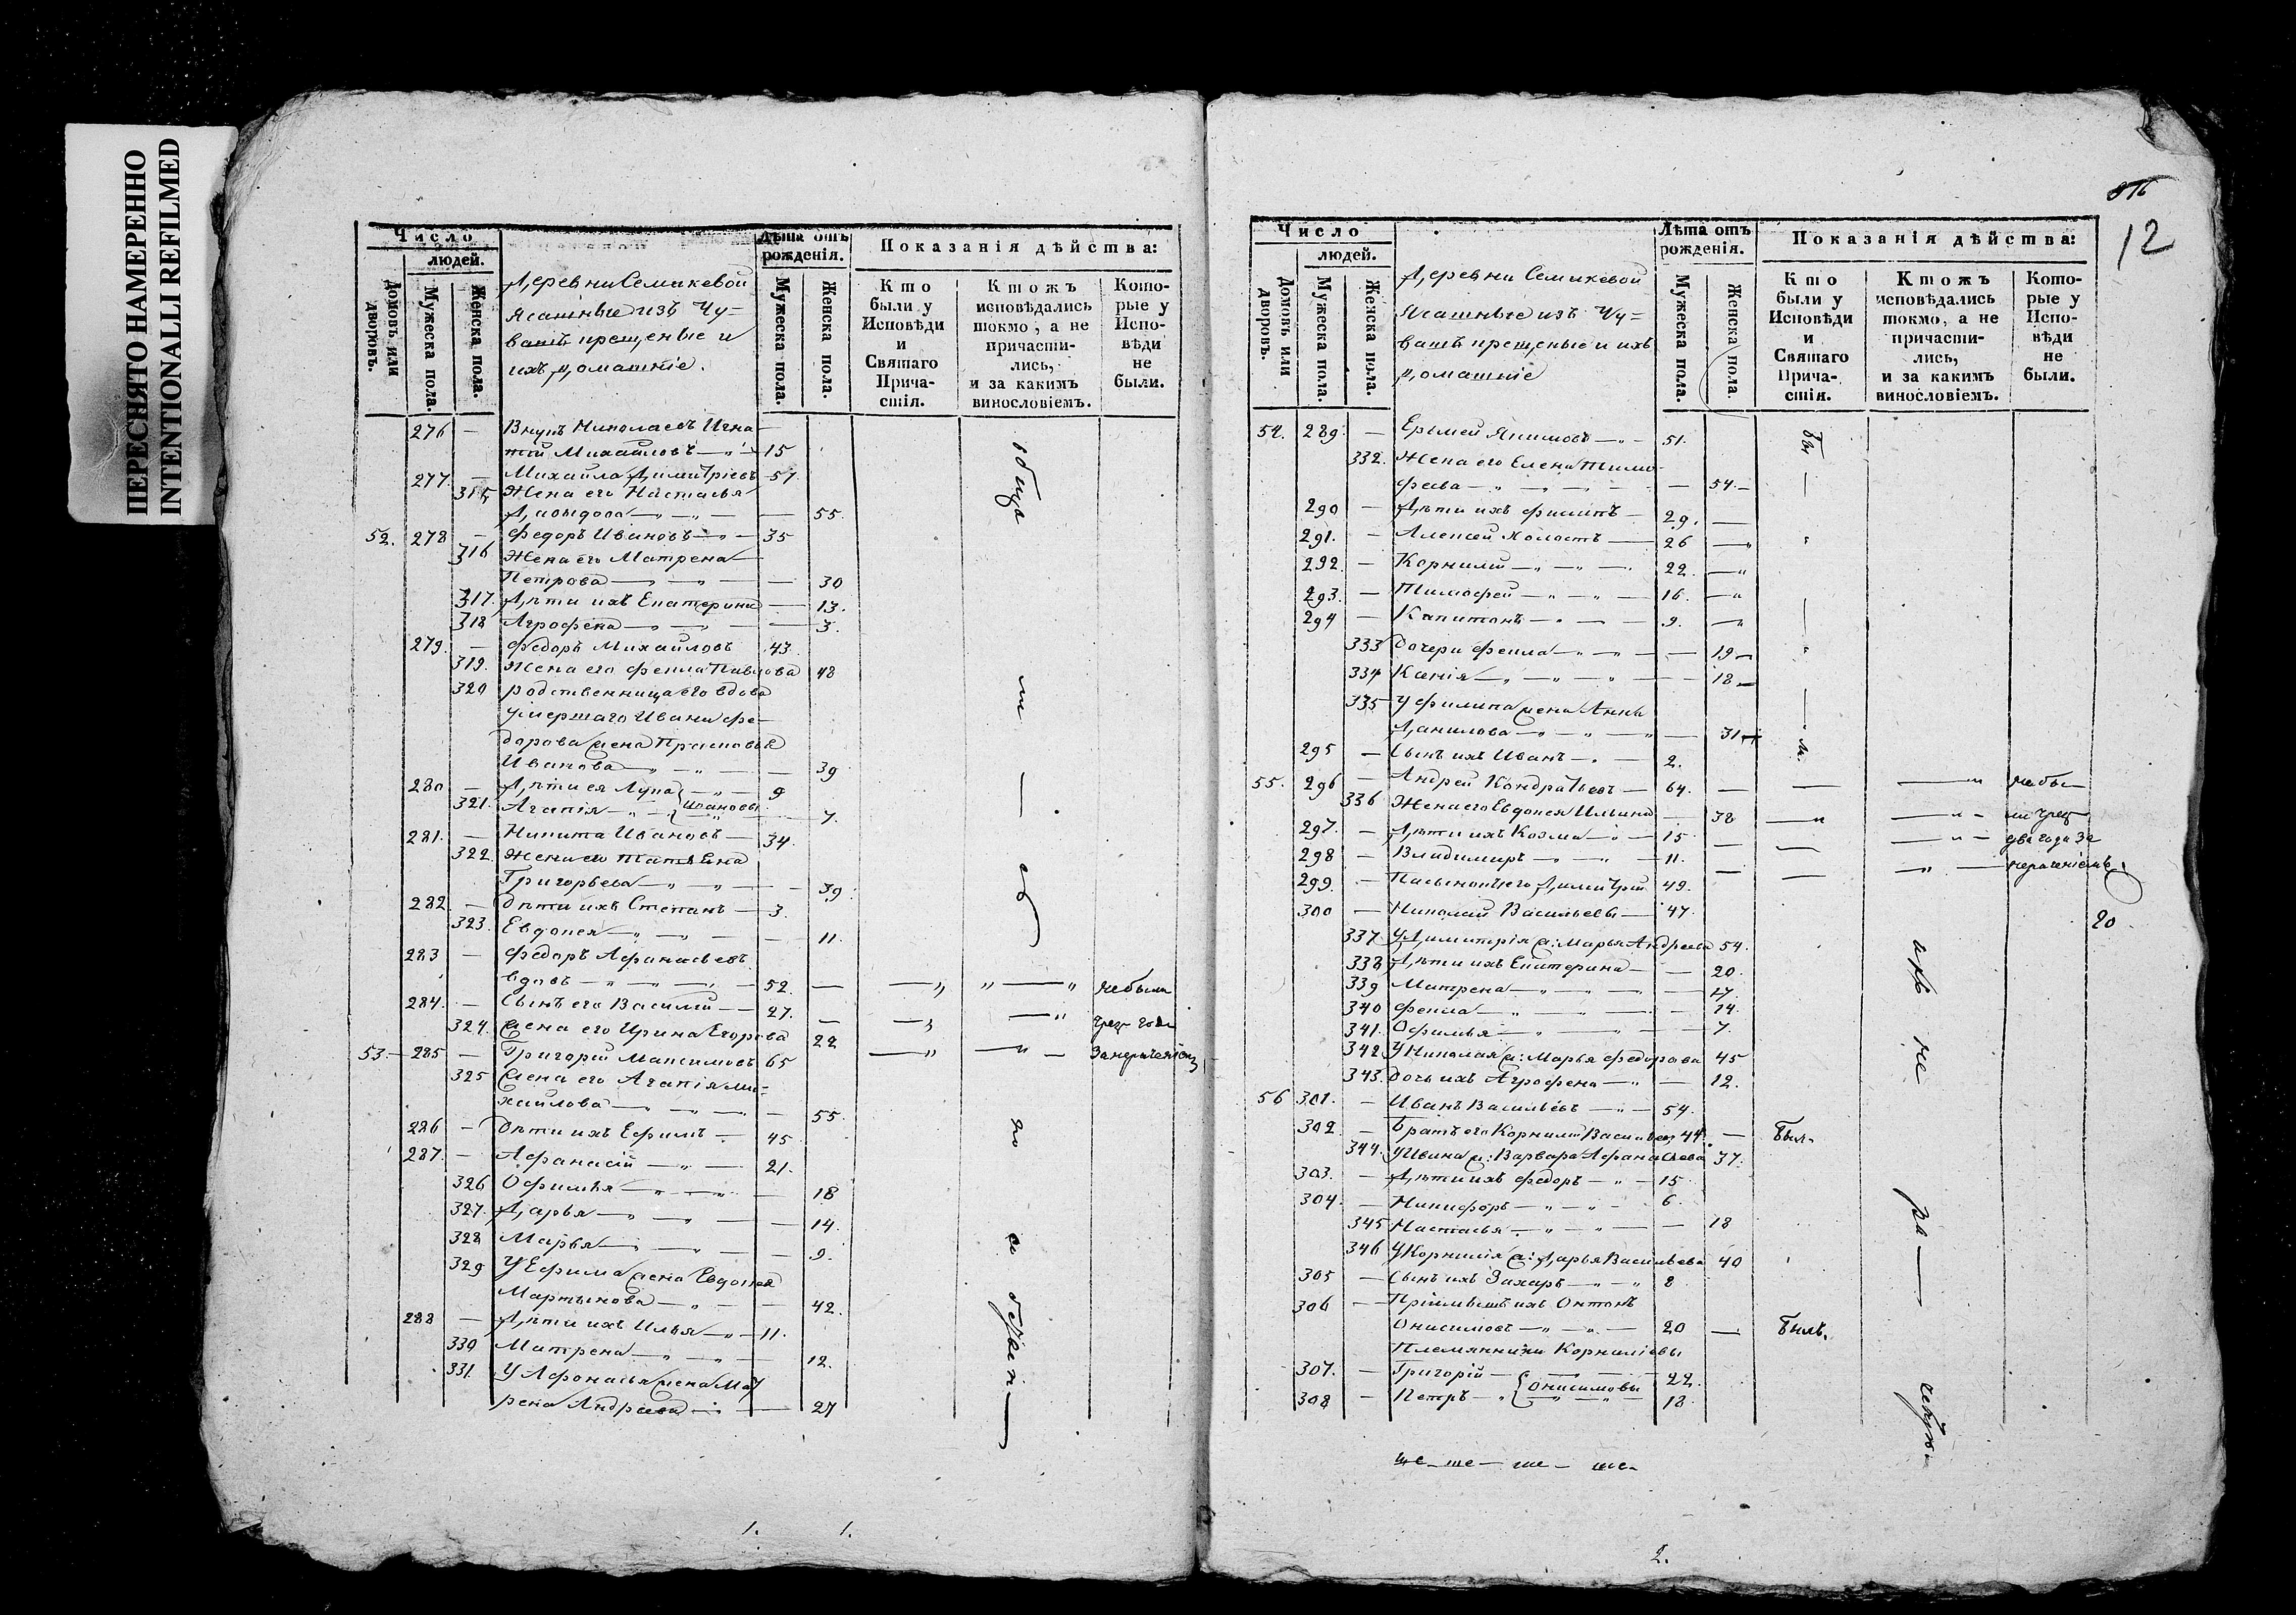 ПЕРЕСНЯТО НАМЕРЕННО
INTENTIONALLI REFILMED
Число
людей.
Домовъ или дворовъ.
Мужеска пола.
Женска пола.
Деревни Семикевой
Ясашные изъ Чу-
вашъ крещеные и
ихъ домашніе.
Лѣта отъ рожденія.
Мужеска пола.
Женска пола.
Показанія дѣйства:
Кто были у Исповѣди и Святаго Прича-стія.
Ктожъ исповѣдались токмо, а не причасти-лись, и за какимъ винословіемъ.
Кото-рые у Испо-вѣди не были.
276 — Внукъ Николаевъ Игна-
тій Михайловъ — 15
277 — Михайла Димитріевъ 57
315 Жена его Настасья
55.
52. 278 — Федоръ Ивановъ — 35
316 Жена его Матрена
Петрова — 30
317. Дѣти ихъ Екатерина — 13.
318 Агрофена — 3.
279. — Федоръ Михайловъ 43
319. Жена его Фекла Павлова 48
320 родственница его вдова
умершаго Ивана Фе-
дорова жена Прасковья
Иванова — 39
280 — Дѣти ея Лупа — 9
321. Агапія — Ивановы 7.
281. — Никита Ивановъ — 34.
322. Жена его Татьяна
Григорьева — 39
282 — Дѣти ихъ Степанъ — 3.
323. Евдокея — 11.
283 — Федоръ Афанасьевъ
вдовъ — 52. — небыли
284. — Сынъ его Василій — 27.
324. жена его Ирина Егорова 22
53. — 285 — Григорій Максимовъ 65
325 жена его Агапія Ми-
хайлова — 55.
286 — Дѣти ихъ Ефимъ — 45
287. — Афанасій — 21.
326 Офимья — 18
327. Дарья — 14.
328 Марья — 9.
329 У Ефима жена Евдокея
Мартынова — 42.
288 — Дѣти ихъ Илья — 11.
330 Матрена — 12.
331. У Афонасья жена Мат
рена Андреева — 27
1. 1.
12
Число
людей.
Домовъ или дворовъ.
Мужеска пола.
Женска пола.
Деревни Семикевой
Ясашные изъ Чу-
вашъ крещеные и ихъ
домашніе
Лѣта отъ рожденія.
Мужеска пола.
Женска пола.
Показанія дѣйства:
Кто были у Исповѣди и Святаго Прича-стія.
Ктожъ исповѣдались токмо, а не причасти-лись, и за какимъ винословіемъ.
Кото-рые у Испо-вѣди не были.
54. 289. — Ермей Якимовъ — 51.
332. Жена его Елена Тимо-
феева — 54. —
290 — Дѣти ихъ Филипъ — 29. —
291. — Алексей холостъ — 26 —
292. — Корнилій — 22. —
293. — Тимофей — 16. —
294 — Капитонъ — 9. —
333 Дочери Фекла — 19 —
334 Ксенія — 18 —
335 У Филипа жена Анна
Данилова — 31
295 — Сынъ ихъ Иванъ — 2.
55. 296 — Андрей Кондратьевъ — 64. — небы-
336 Жена его Евдокея Ильина — 38 —
297. — Дѣти ихъ Козма — 15 — два года за
298 — Владимиръ — 11. — нерачніемъ.
299. — Пасынокъ его Димитрій 49.
300 — Николай Васильевы — 47. 20
337 У Димитрія ж: Марья Андреева 54.
338 Дѣти ихъ Екатерина — 20.
339 Матрена — 17.
340 Фекла — 14.
341. Офимья — 7.
342 У Николая ж: Марья Федорова 45
343. Дочь ихъ Агрофена — 12.
56 301. — Иванъ Васильевъ — 54.
302. — Братъ его Корнилій Васильевъ 44. —
344. У Ивана ж: Варвара Афанасьева 37.
303. — Дѣти ихъ Федоръ — 15
304. — Никифоръ — 6.
345 Настасья — 18
346 У Корнилія ж: Дарья Васильева 40
305 — Сынъ ихъ Захаръ — 8
306 — Пріимышъ ихъ Антонъ
Онисимовъ — 20 — Былъ.
Племянники Корниліевы
307. — Григорій — 22.
Онисимовы
308 — Петръ — 18
2.